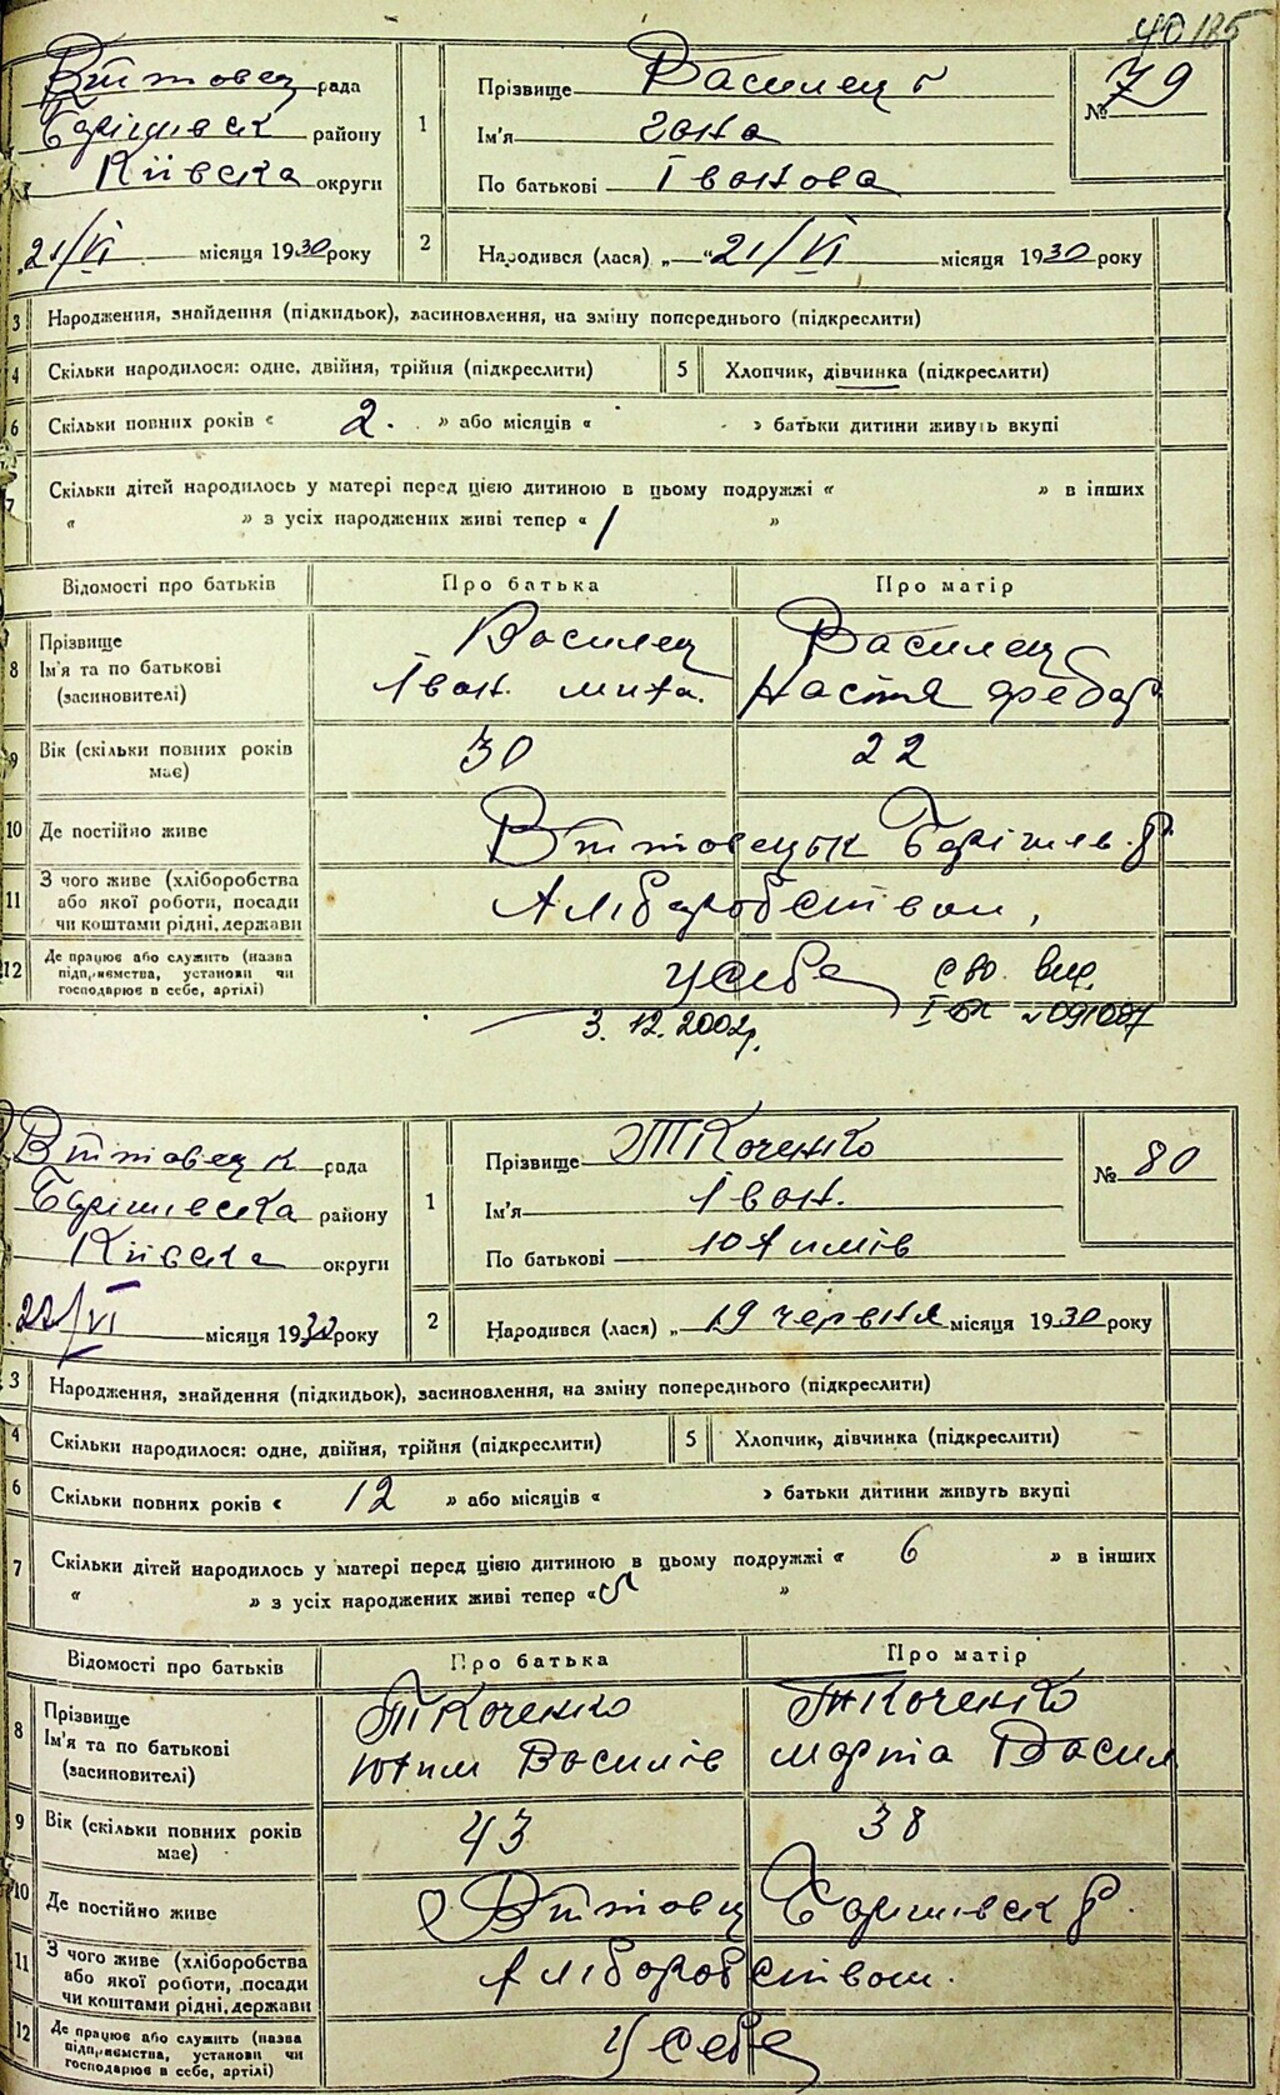 40 185
Втптовец рада
Барішивск району
Київска округи
21/VI місяця 1930 року
1
Прізвище Василец
Ім'я Гана
По батькові Іванова
№ 79
2
Народився (лася) „ “ 21/VI місяця 1930 року
3 Народження, знайдення (підкидьок), засиновлення, на зміну попереднього (підкреслити)
4 Скільки народилося: одне, двійня, трійня (підкреслити) 5 Хлопчик, дівчинка (підкреслити)
6 Скільки повних років « 2. » або місяців « » батьки дитини живуть вкупі
7 Скільки дітей народилось у матері перед цією дитиною в цьому подружжі « » в інших
« » з усіх народжених живі тепер « 1 »
Відомості про батьків Про батька Про матір
8 Прізвище Василец Василец
Ім'я та по батькові Іван. Миха. Настя Федор
(засиновителі)
9 Вік (скільки повних років 30 22
має)
10 Де постійно живе Барішив. р
11 З чого живе (хліборобства
або якої роботи, посади Хліборобством,
чи коштами рідні, держави
12 Де працює або служить (назва
підприємства, установи чи усебе сво. вид.
господарює в себе, артілі)
3.12.2002р. І-БК №091087
рада
Барішивска району
Київска округи
22/VI місяця 1930 року
1
Прізвище Ткаченко
Ім'я Іван.
По батькові Юхимів
№ 80
2
Народився (лася) „ 19 червня місяця 1930 року
3 Народження, знайдення (підкидьок), засиновлення, на зміну попереднього (підкреслити)
4 Скільки народилося: одне, двійня, трійня (підкреслити) 5 Хлопчик, дівчинка (підкреслити)
6 Скільки повних років « 12 » або місяців « » батьки дитини живуть вкупі
7 Скільки дітей народилось у матері перед цією дитиною в цьому подружжі « 6 » в інших
« » з усіх народжених живі тепер « 5 »
Відомості про батьків Про батька Про матір
8 Прізвище Ткаченко Ткаченко
Ім'я та по батькові Юхим Василів Марта Васил
(засиновителі)
9 Вік (скільки повних років 43 38
має)
10 Де постійно живе Баришівск р.
11 З чого живе (хліборобства
або якої роботи, посади Хліборобством.
чи коштами рідні, держави
12 Де працює або служить (назва
підприємства, установи чи У себе
господарює в себе, артілі)